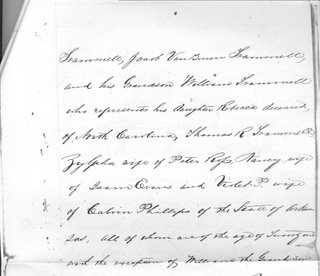 Trammell, Jacob Van Buren Trammell,
and his Grandson William Trammell
who represents his daughter Rebecca deceased,
of North Carolina, Thomas R. Trammell
Zylpha wife of Peter Ross, Nancy wife
of Isam Evans and Violet P. wife
of Calvin Phillips of the State of Arkan
sas, all of whom are of the age of Twenty one
with the exception of William the Grandson